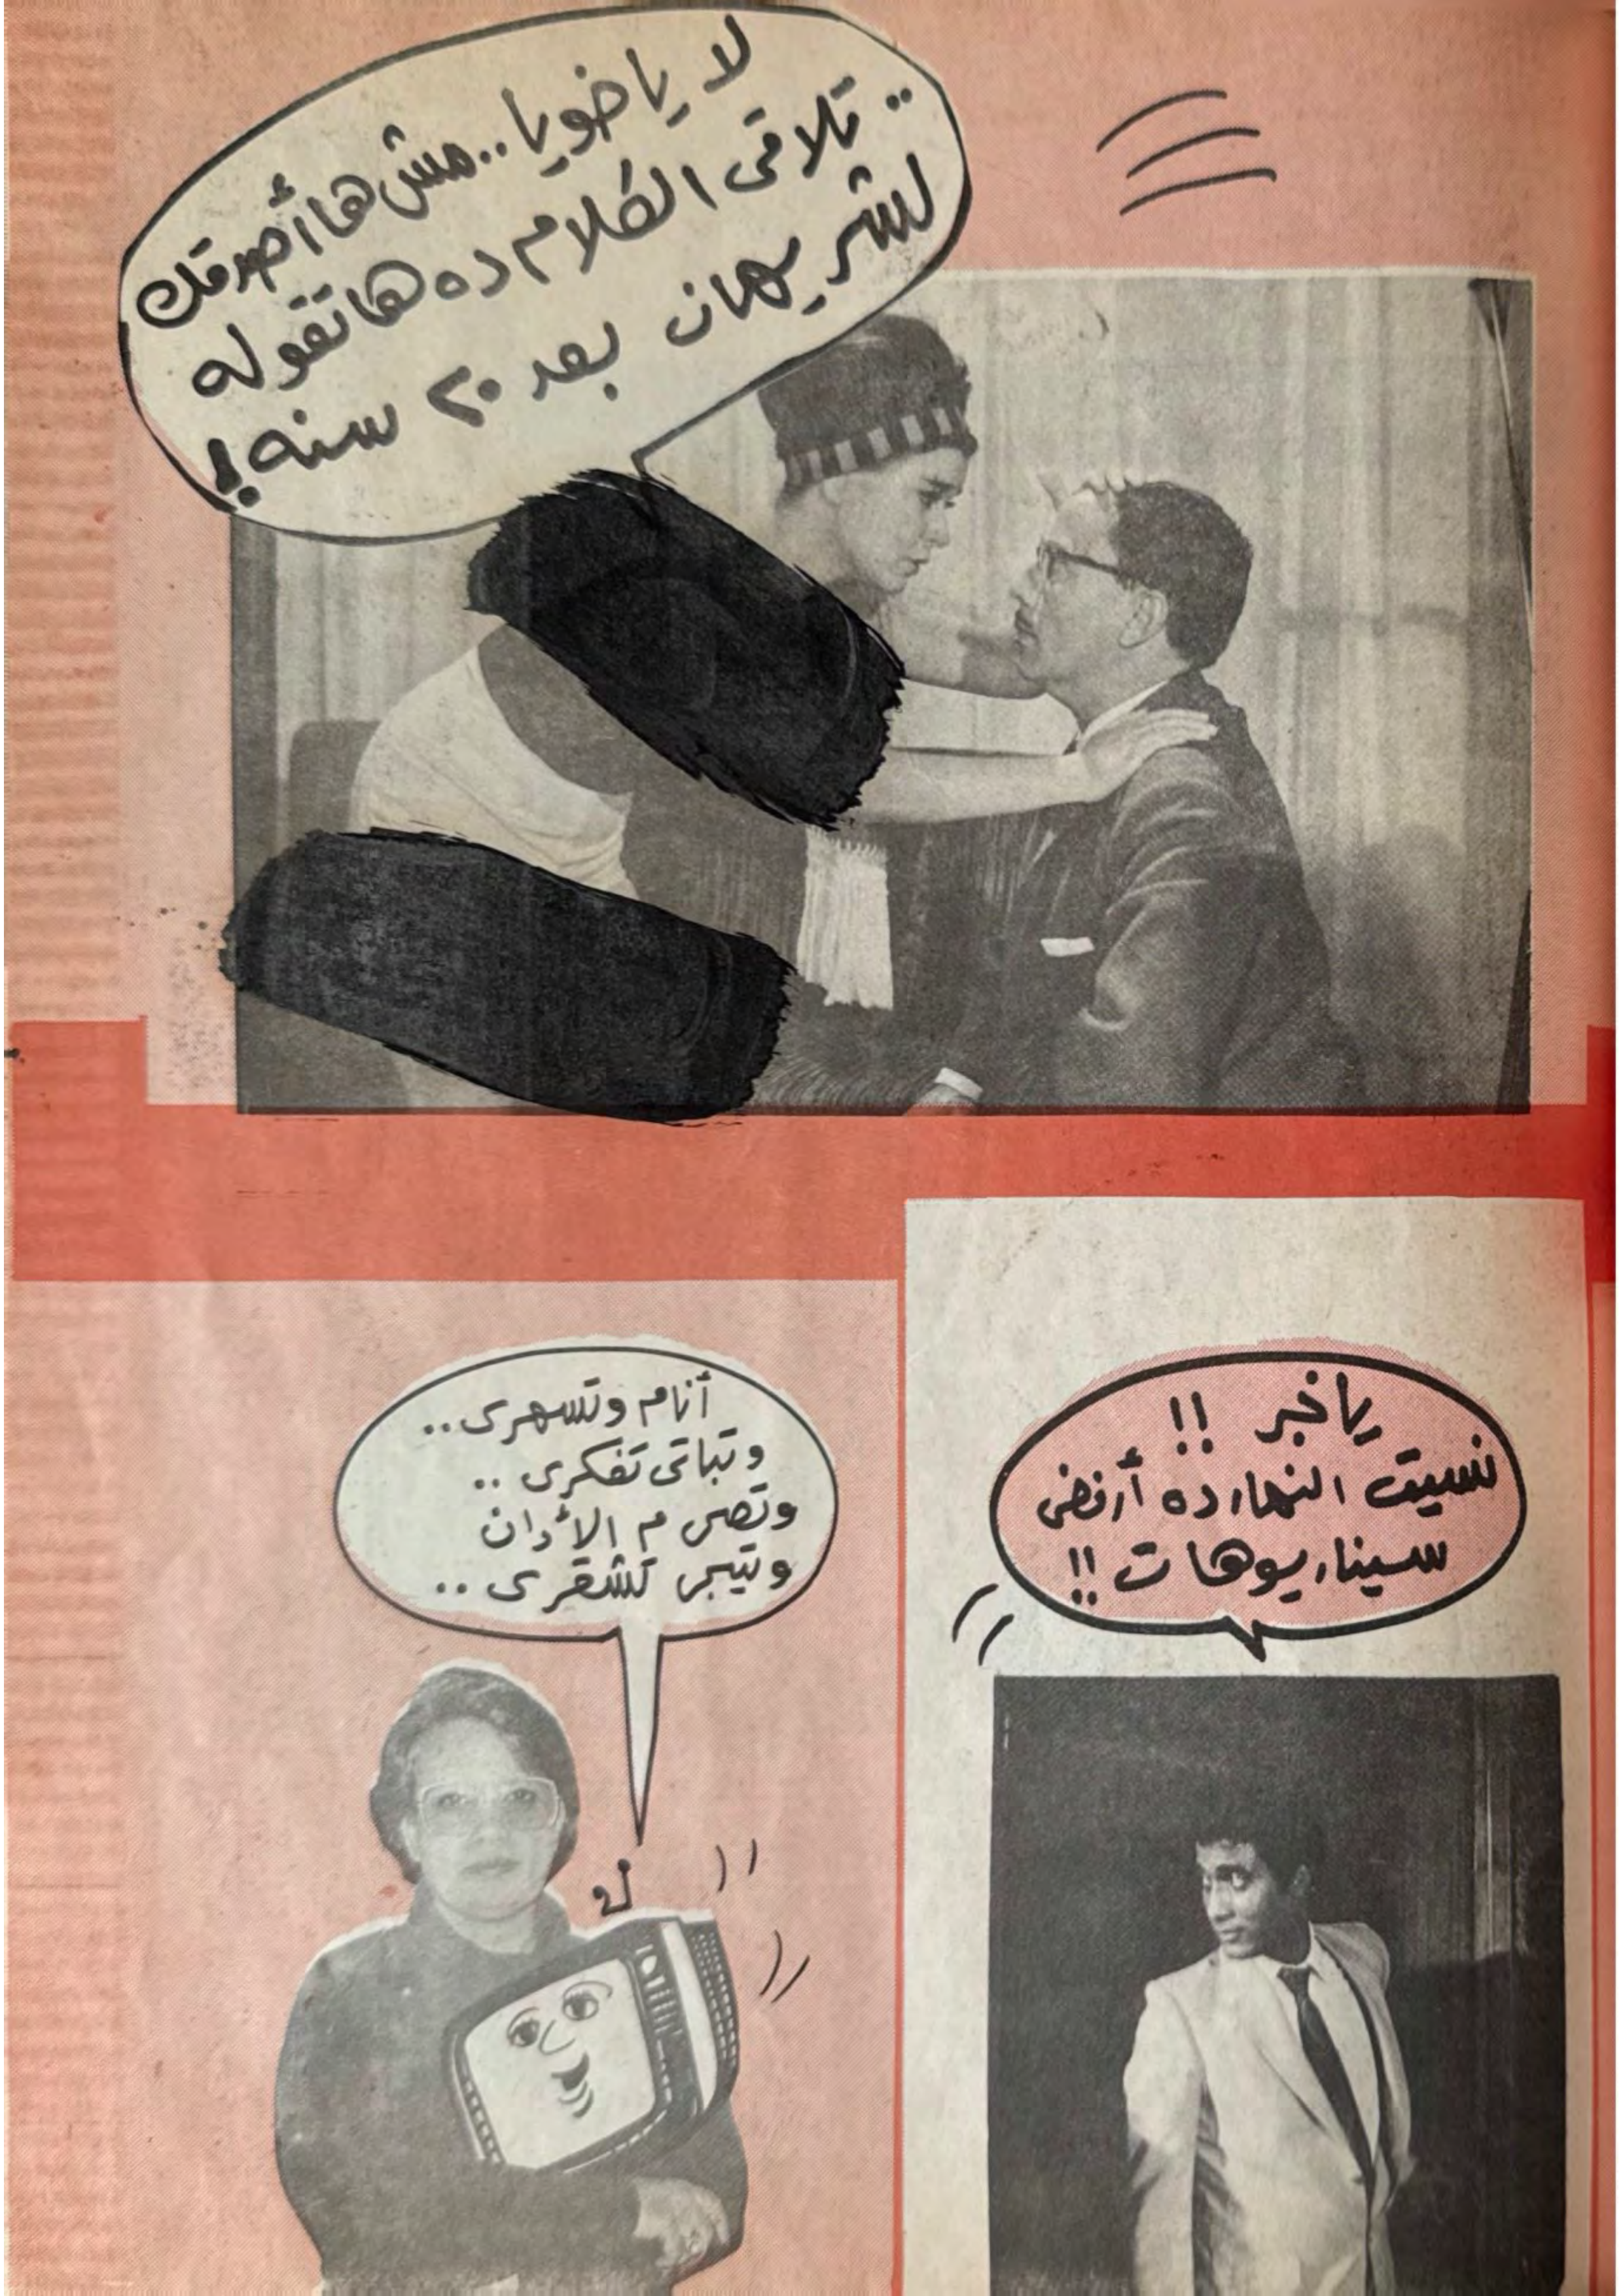 لا ياخويا.. مش هاأصدقك
.. تلاقى الكلام ده هاتقوله
لشريهان بعد ٢٠ سنه!
ياخبر !!
نسيت النهارده أرفض
سيناريوهات !!
أنام وتسهرى..
وتباتى تفكرى ..
وتصى م الأدان
وتيجى تشقرى ..